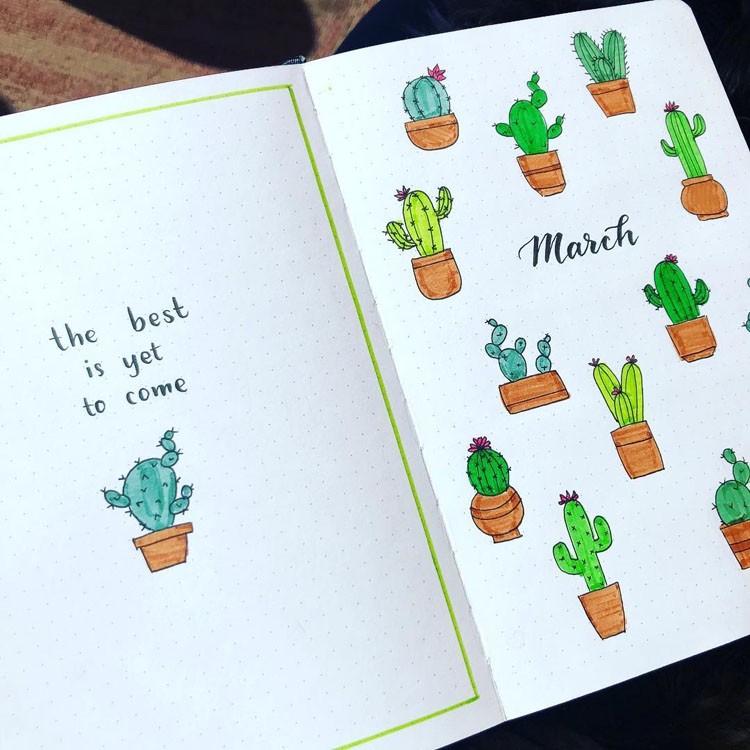 the best
is yet
to come
March